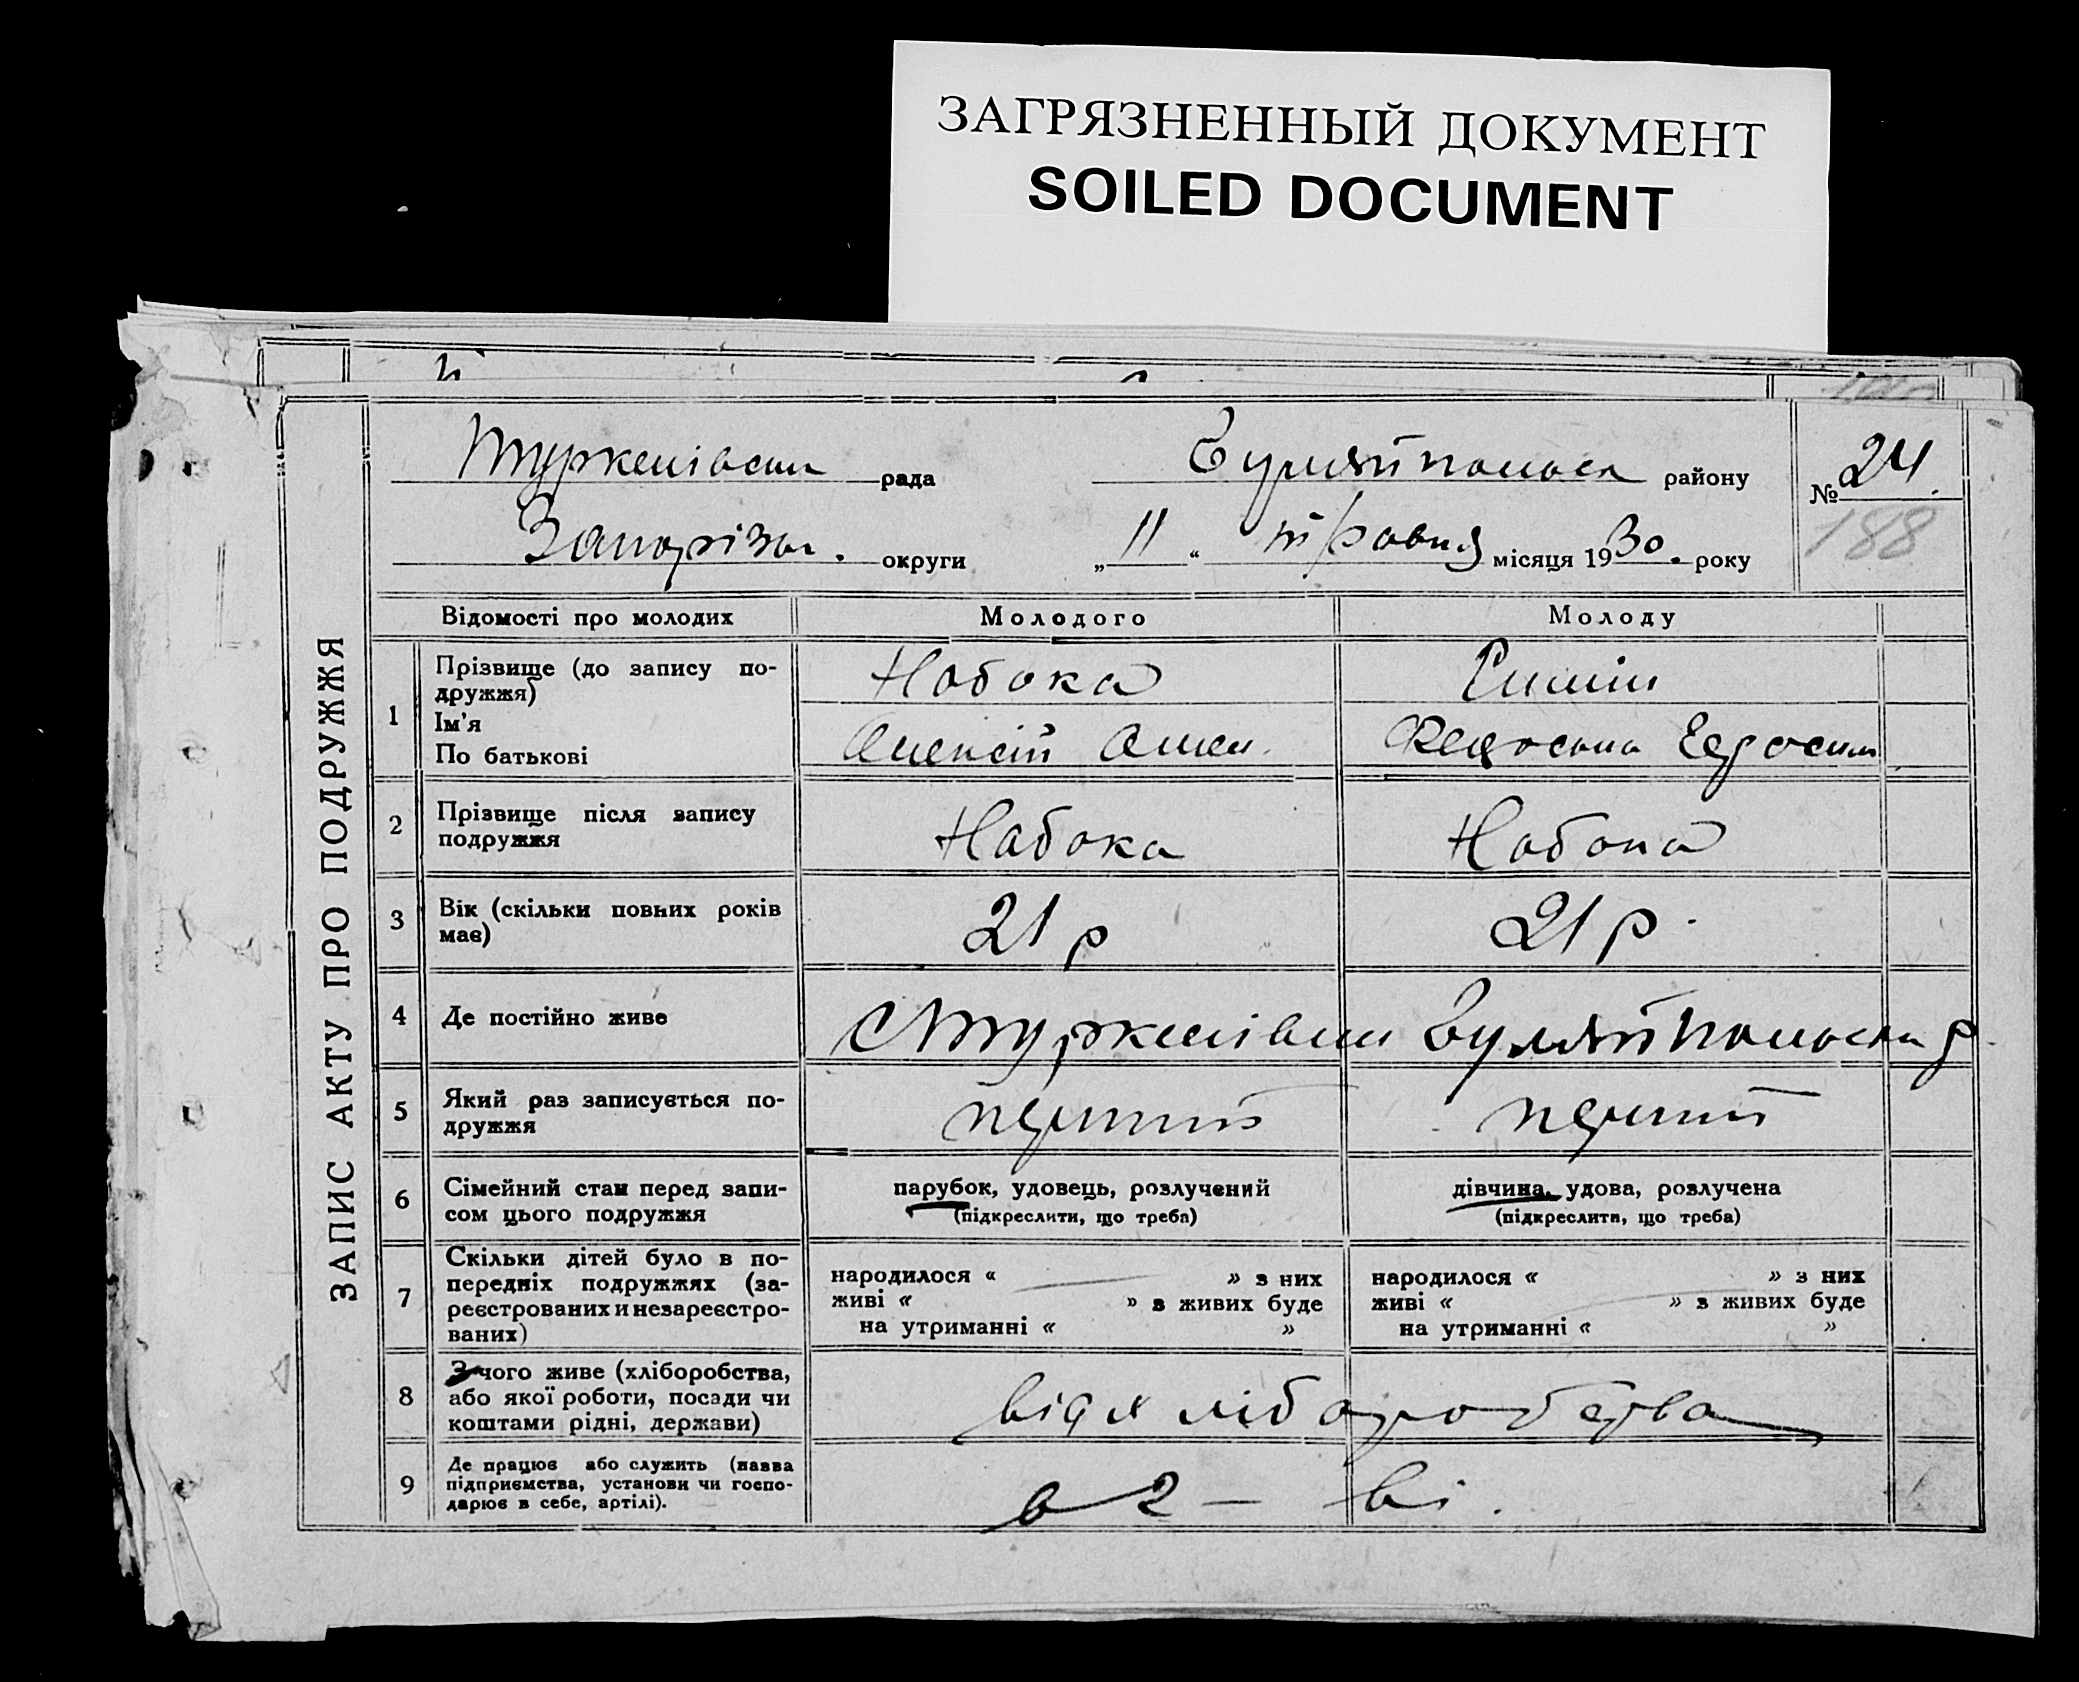 ЗАГРЯЗНЕННЫЙ ДОКУМЕНТ
SOILED DOCUMENT
ЗАПИС АКТУ ПРО ПОДРУЖЖЯ
Туркенівськ рада Гуляйпольськ району № 24.
Запоріськ. округи „11“ травня місяця 1930. року 188
Відомості про молодих Молодого Молоду
1 Прізвище (до запису по-
дружжя) Набока
Ім'я
По батькові Олексій Олек. Федоська
2 Прізвище після запису
подружжя Набока Набока
3 Вік (скільки повних років
має) 21 р 21 р.
4 Де постійно живе с Туркенівки Гуляйпольськ р.
5 Який раз записується по-
дружжя перший перший
6 Сімейний стан перед запи-
сом цього подружжя парубок, удовець, розлучений
(підкреслити, що треба) дівчина, удова, розлучена
(підкреслити, що треба)
7 Скільки дітей було в по-
передніх подружжях (за-
реєстрованих и незареєстро-
ваних) народилося « » з них
живі « » з живих буде
на утриманні « » народилося « » з них
живі « » з живих буде
на утриманні « »
8 З чого живе (хліборобства,
або якої роботи, посади чи
коштами рідні, держави) від хліборобства
9 Де працює або служить (назва
підприємства, установи чи госпо-
дарює в себе, артілі). в г – ві.